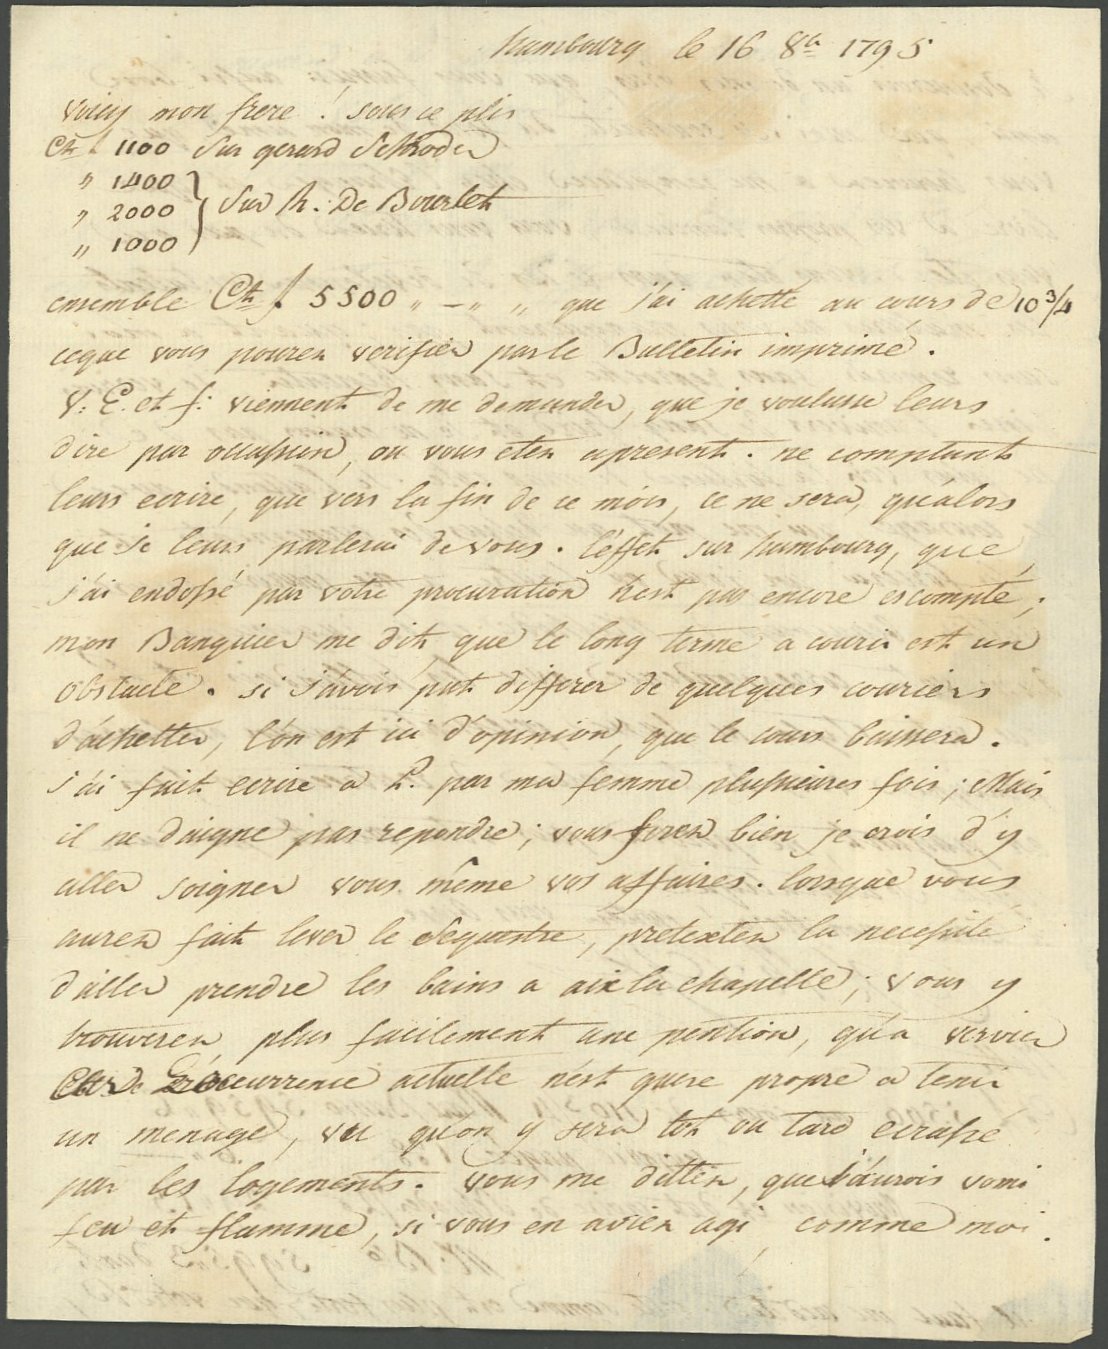 hambourg le 16 8bre 1795
voicy mon frere ! sous ce plis
Ct f 1100 Sur gerard Schroder
" 1400
" 2000 } Sur R. De Bourlet
" 1000
ensemble Ct f 5500 " - " " que j'ai achetté au cours de 10 3/4
ceque vous pourez verifier par le Bulletin imprimé.
V: E. et f: viennent de me demander, que je voulusse leurs
dire par occassion, ou vous etez apresent. ne comptant
leurs ecrire, que vers la fin de ce mois, ce ne sera, qu'alors
que je leurs parlerai de vous. l'éffet sur hambourg, que
j'ai endossé par votre procuration n'est pas encore escompté;
mon Banquier me dit, que le long terme a courir est un
obstacle. si j'avois put differer de quelques couriers
d'achetter, l'on est ici d'opinion, que le cours baissera.
j'ai fait ecrire a P. par ma femme plussieures fois; Mais
il ne daigne pas repondre; vous ferez bien je crois d'y
aller soigner vous même vos affaires. lorsque vous
aurez fait lever le Sequestre, pretextez la necessité
d'aller prendre les bains a aix la chapelle; vous y
trouverez plus facilement une pention, qu'a vervier
occurrence actuelle n'est guere propre a tenir
un menage, vu qu'on y sera tot ou tard ecrassé
par les logements. vous me dittez, que j'aurois vomi
feu et flamme, si vous en aviez agi comme moi.